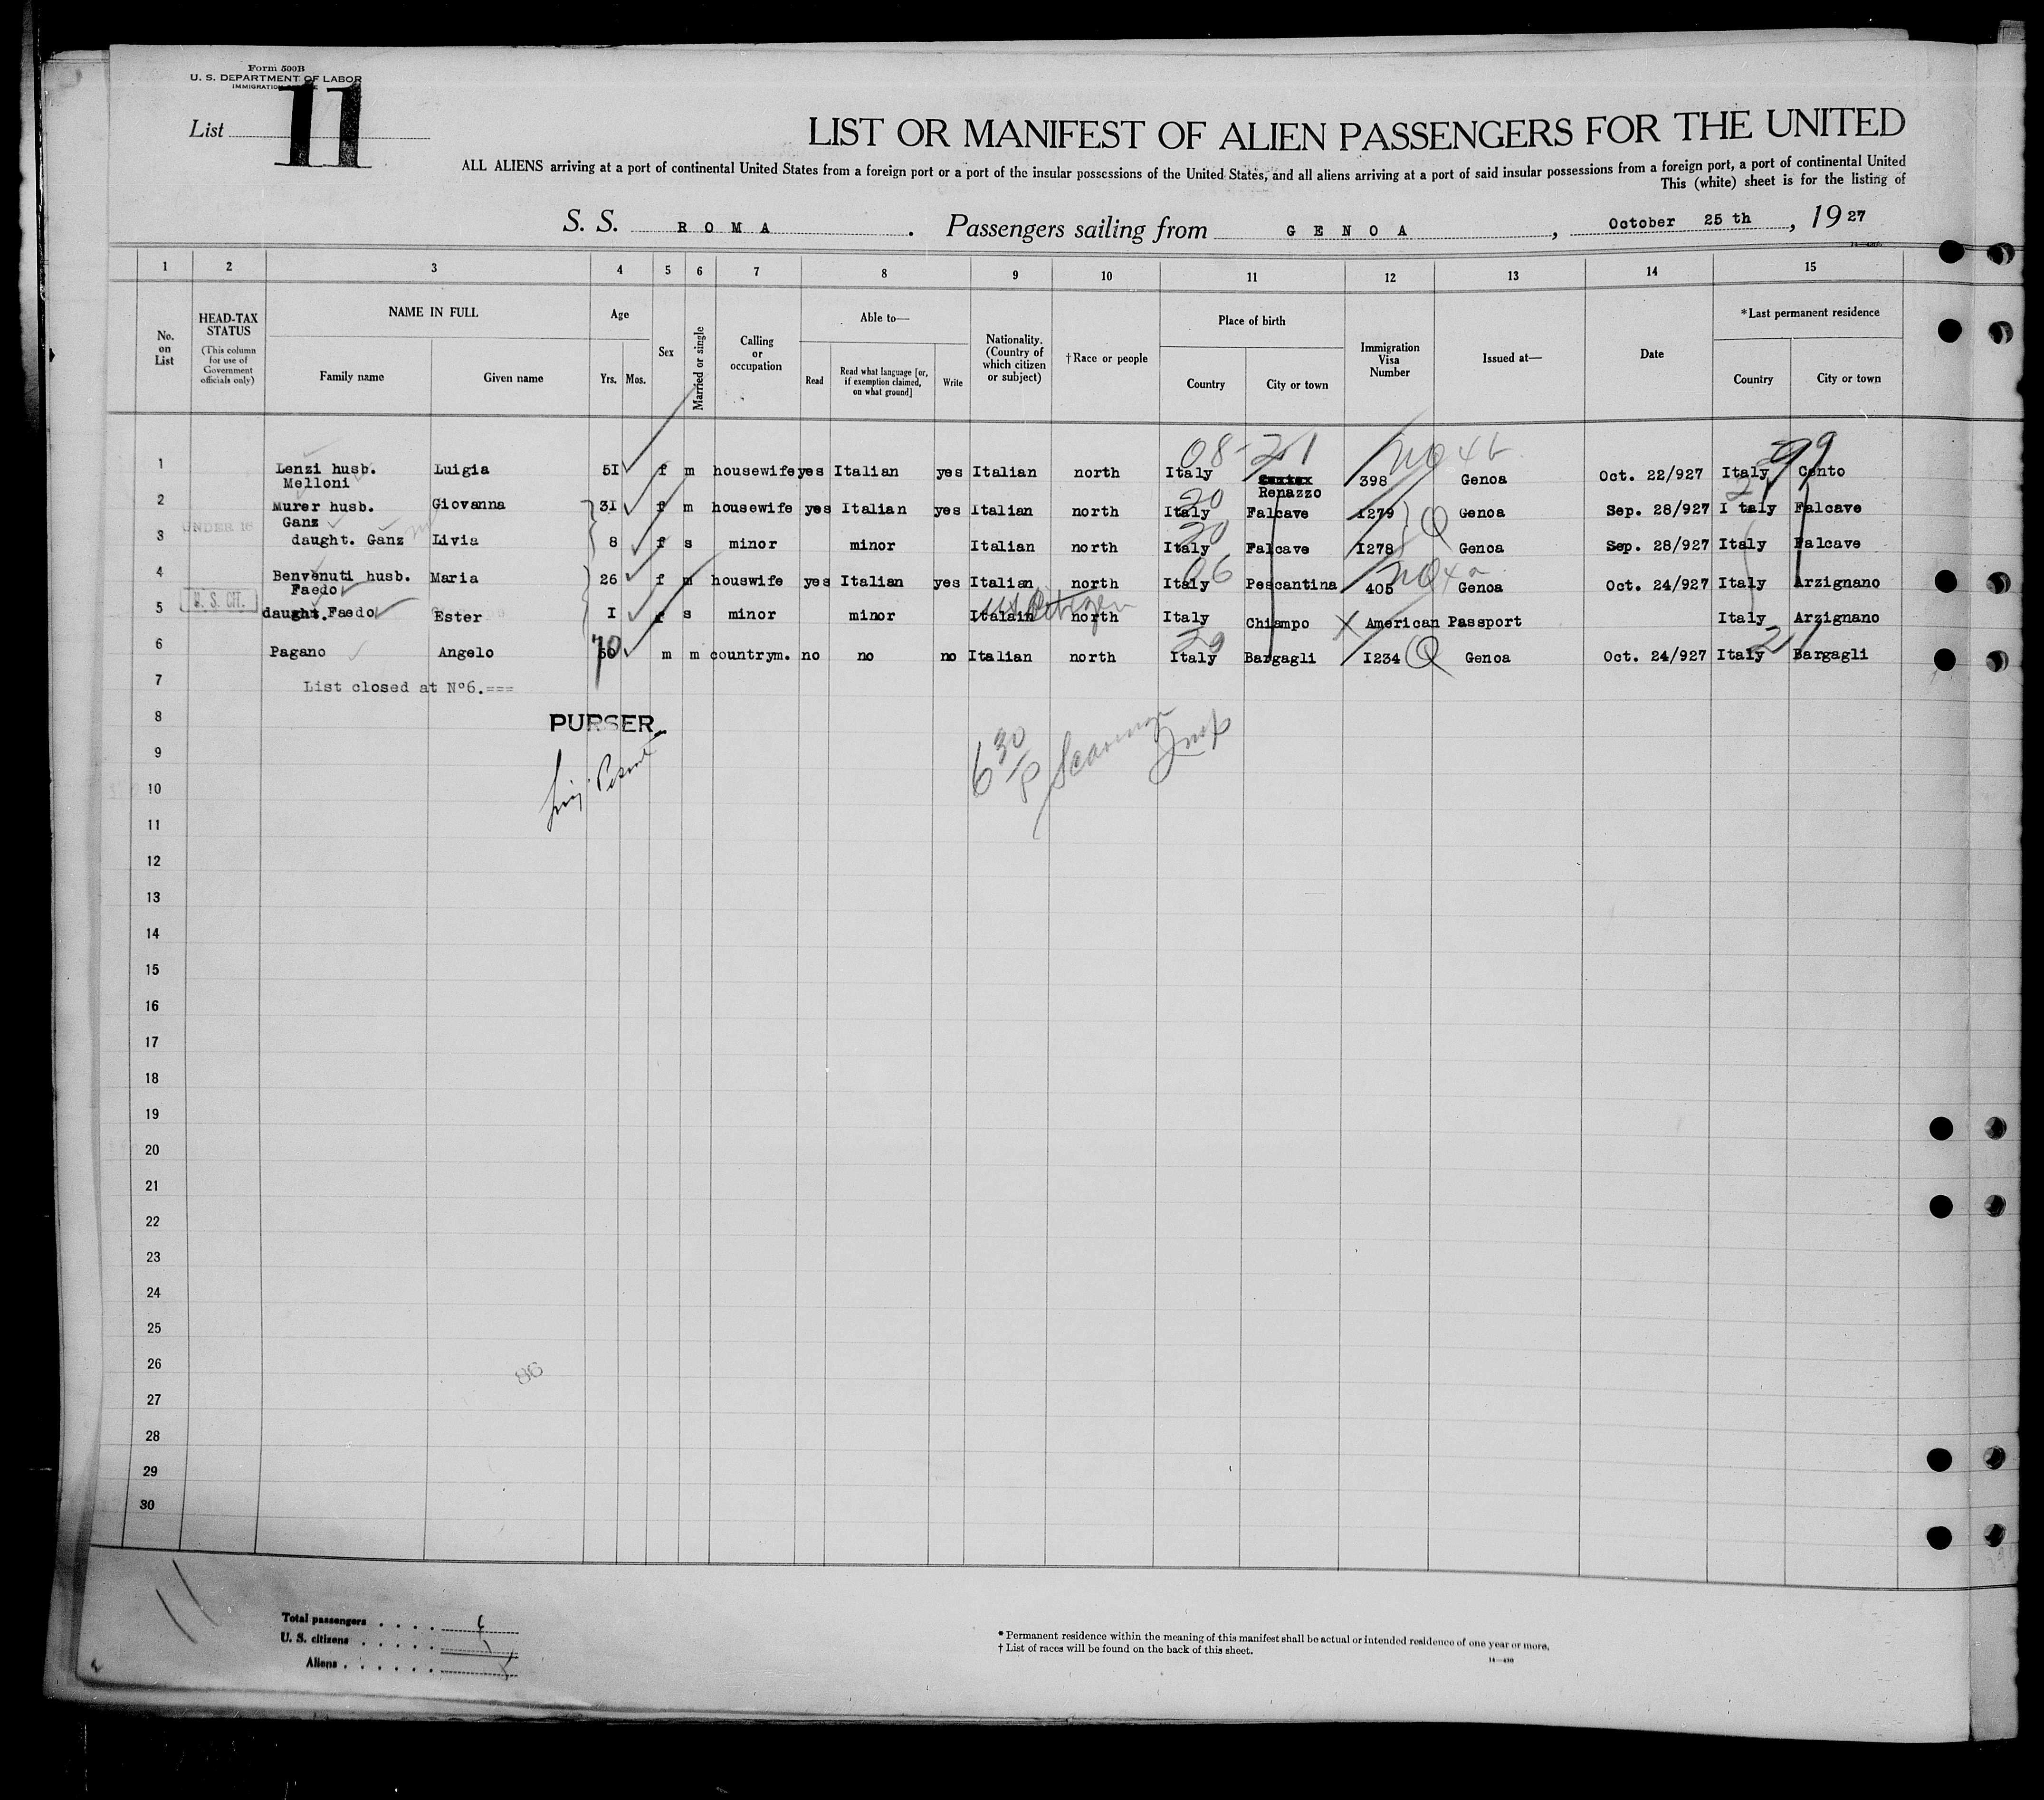 Form 500B
U. S. DEPARTMENT OF LABOR
IMMIGRATION
List 11
LIST OR MANIFEST OF ALIEN PASSENGERS FOR THE UNITED
ALL ALIENS arriving at a port of continental United States from a foreign port or a port of the insular possessions of the United States, and all aliens arriving at a port of said insular possessions from a foreign port, a port of continental United
This (white) sheet is for the listing of
S. S. ROMA. Passengers sailing from GENOA, October 25 th, 1927
1 2 3 4 5 6 7 8 9 10 11 12 13 14 15
No. on List
HEAD-TAX STATUS (This column for use of Government officials only)
NAME IN FULL Family name Given name
Age Yrs. Mos.
Sex
Married or single
Calling or occupation
Able to— Read Read what language [or, if exemption claimed, on what ground] Write
Nationality. (Country of which citizen or subject)
†Race or people
Place of birth Country City or town
Immigration Visa Number
Issued at—
Date
*Last permanent residence Country City or town
08-21 NQ 4b 99
1 Lenzi husb. Luigia 5I f m housewife yes Italian yes Italian north Italy 398 Genoa Oct. 22/927 Italy Cento
Melloni Renazzo
20 21
2 Murer husb. Giovanna 3I f m housewife yes Italian yes Italian north Italy Falcave I279 Q Genoa Sep. 28/927 I taly Falcave
Ganz
UNDER 16 20
3 daught. Ganz Livia 8 f s minor minor Italian north Italy Falcave I278 Genoa Sep. 28/927 Italy Falcave
06 NQ 4a
4 Benvenuti husb. Maria 26 f m houswife yes Italian yes Italian north Italy Pescantina 405 Genoa Oct. 24/927 Italy Arzignano
Faedo
U. S. CIT. US Citizen
5 daught. Faedo Ester I f s minor minor Italain north Italy Chiampo X American Passport Italy Arzignano
70 29 21
6 Pagano Angelo m m countrym. no no no Italian north Italy Bargagli I234 Q Genoa Oct. 24/927 Italy Bargagli
7 List closed at Nº6.===
8 PURSER
9
630 P
10
11
12
13
14
15
16
17
18
19
20
21
22
23
24
25
26
86
27
28
29
30
11
Total passengers . . . .
U. S. citizens . . . . . 1
Aliens . . . . . .
* Permanent residence within the meaning of this manifest shall be actual or intended residence of one year or more.
† List of races will be found on the back of this sheet.
14—430